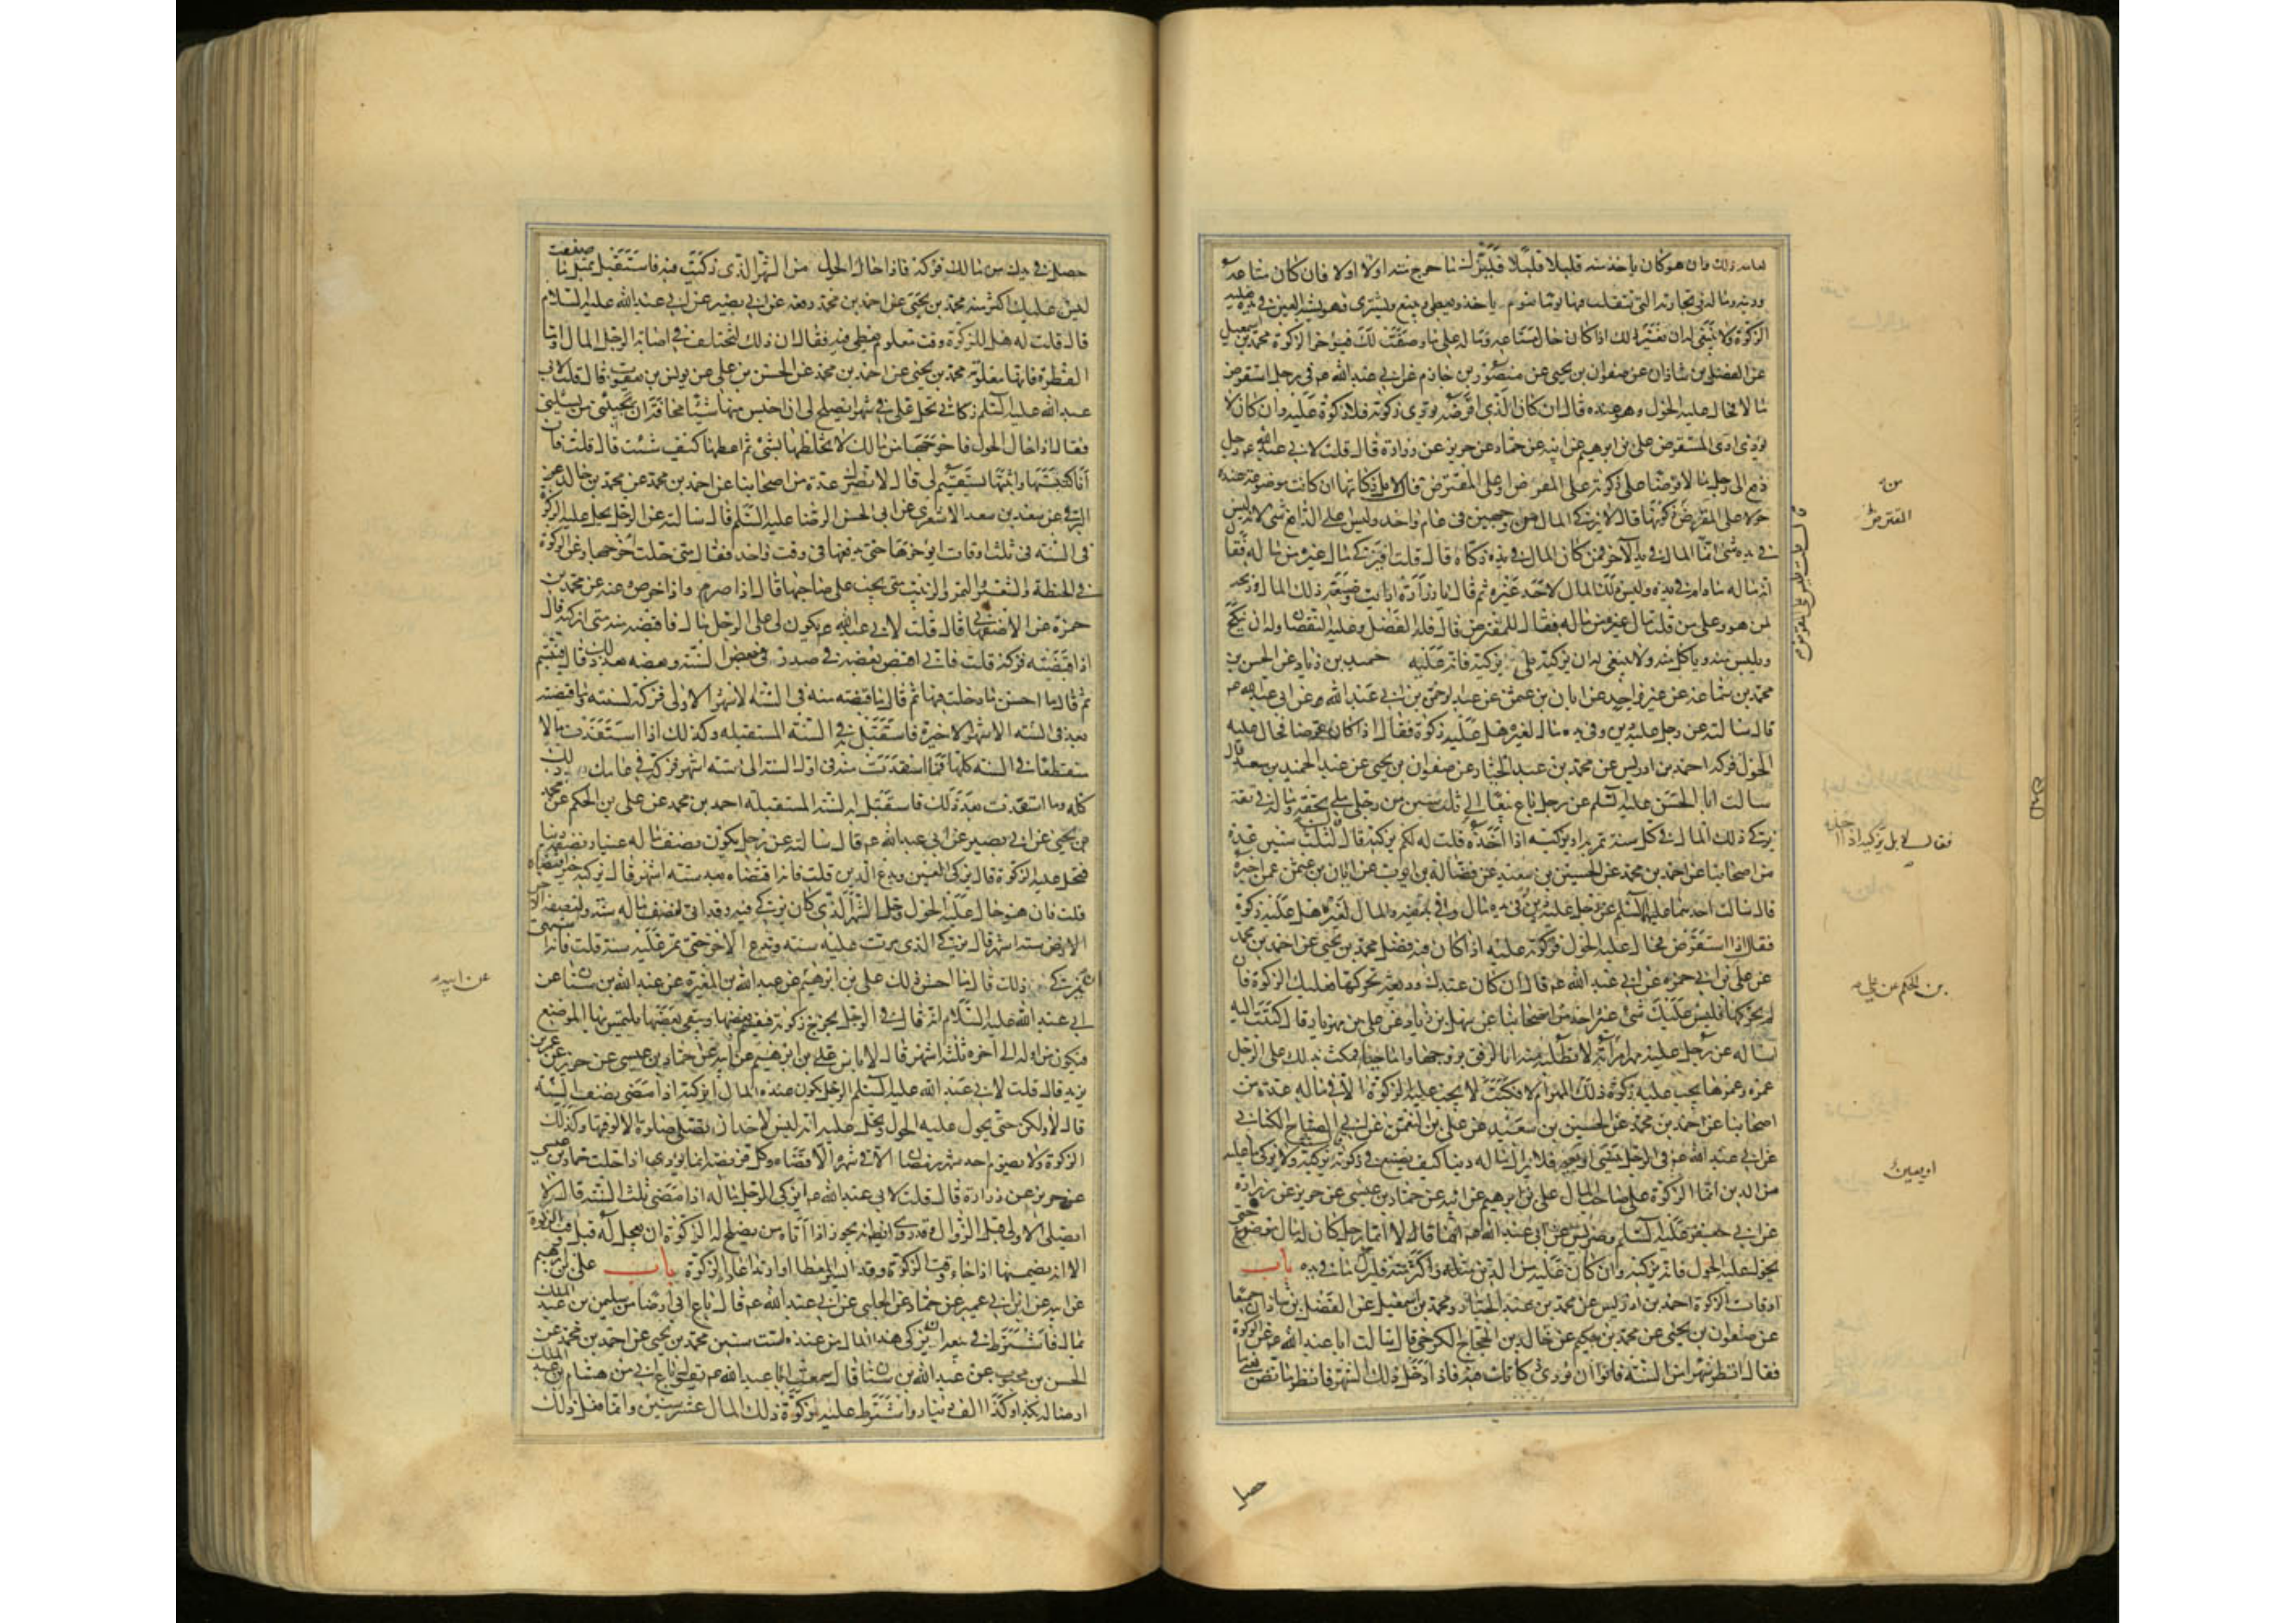 لعامه ذلك وان هو كان ياخذ منه قليلا قليلا فليزك ما خرج منه اولا اولا فان كان متاعه
ودينه وماله في تجارته التي يتقلب فيها يوما بيوم ياخذ ويعطي ويبيع ويشتري فهو شبه العين في يده فعليه
الزكوة ولا ينبغي له ان يغير ذلك اذا كان حال متاعه وماله على ما وصفت لك فيؤخر الزكوة محمد بن اسمعيل
عن الفضل بن شاذان عن صفوان بن يحيى عن منصور بن حازم عن ابي عبد الله ع م في رجل استقرض
مالا فحال عليه الحول وهو عنده قال ان كان الذي اقرضه يؤدي زكوته فلا زكوة عليه وان كان لا
يؤدي ادى المستقرض علي بن ابرهيم عن ابيه عن حماد عن حريز عن زرارة قال قلت لابي عبد الله ع م رجل
دفع الى رجل مالا قرضا على من زكوته على المقرض او على المقترض قال لا بل زكاتها ان كانت موضوعة عنده
حولا على المقترض زكوتها قال لا يزكى المال من وجهين في عام واحد وليس على الدافع شئ لانه ليس
في يده شئ انما المال في يد الاخر فمن كان المال في يده زكاه قال قلت افيزكي مال غيره من ماله فقال
انه ماله ما دام في يده وليس ذلك المال لاحد غيره ثم قال يا زرارة ارايت وضيعة ذلك المال وربحه
لمن هو وعلى من قلت للمقترض قال فله الفضل وعليه النقصان وله ان ينكح
ويلبس منه وياكل منه ولا ينبغي له ان يزكيه بلى يزكيه فانه عليه حميد بن زياد عن الحسن بن
محمد بن سماعة عن غير واحد عن ابان بن عثمن عن عبد الرحمن بن ابي عبد الله عن ابي عبد الله ع م
قال سالته عن رجل عليه دين وفي يده مال لغيره هل عليه زكوة فقال اذا كان قرضا فحال عليه
الحول فزكه احمد بن ادريس عن محمد بن عبد الجبار عن صفوان بن يحيى عن عبد الحميد بن سعد قال
سالت ابا الحسن عليه السلم عن رجل باع بيعا الى ثلث سنين من رجل ملي بحقه وماله في ثقة
يزكي ذلك المال في كل سنة تمر به او يزكيه اذا اخذه قلت له لكم يزكيه قال لثلث سنين عدة
من اصحابنا عن احمد بن محمد عن الحسين بن سعيد عن فضالة بن ايوب عن ابان بن عثمن عمن اخبره
قال سالت احدهما عليهما السلم عن رجل عليه دين وفي يده مال وفي بدينه والمال لغيره هل عليه زكوة
فقال اذا استقرض فحال عليه الحول فزكوته عليه اذا كان فيه فضل محمد بن يحيى عن احمد بن محمد
عن علي بن ابي حمزه عن ابي عبد الله ع م قال ان كان عندك وديعة تحركها فعليك الزكوة فان
لم تحركها فليس عليك شئ غير واحد من اصحابنا عن سهل بن زياد عن علي بن مهزيار قال كتبت اليه
اساله عن رجل عليه مهر امراته لا تطلبه منه اما لرفق بزوجها واما حياء فمكث بذلك على الرجل
عمره وعمرها يجب عليه زكوة ذلك المهر ام لا فكتب لا يجب عليه الزكوة الا في ماله عدة من
اصحابنا عن احمد بن محمد عن الحسين بن سعيد عن علي بن النعمن عن ابي الصباح الكناني
عن ابي عبد الله ع م في الرجل ينسي او يعير فلا يزال ماله دينا كيف يصنع في زكوته قال يزكيه ولا يزكي ما عليه
من الدين انما الزكوة على صاحب المال علي بن ابرهيم عن ابيه عن حماد بن عيسى عن حريز عن زرارة
عن ابي جعفر عليه السلم وضريس عن ابي عبد الله ع م انهما قالا ايما رجل كان له مال موضوع حتى
يحول عليه الحول فانه يزكيه وان كان عليه من الدين مثله واكثر منه فليزك ما في يده باب
اوقات الزكوة احمد بن ادريس عن محمد بن عبد الجبار ومحمد بن اسمعيل عن الفضل بن شاذان جميعا
عن صفوان بن يحيى عن محمد بن حكيم عن خالد بن الحجاج الكرخي قال سالت ابا عبد الله ع م عن الزكوة
فقال انظر شهرا من السنة فانو ان تؤدي زكاتك فيه فاذا دخل ذلك الشهر فانظر ما نض يعني ما
من
المقترض
فقال لا بل يزكيه اذا اخذه
بن الحكم عن علي
او يعين
حصل
حصل في يدك من مالك فزكه فاذا حال الحول من الشهر الذي زكيت فيه فاستقبل بمثل ما صنعت
ليس عليك اكثر منه محمد بن يحيى عن احمد بن محمد رفعه عن ابي بصير عن ابي عبد الله عليه السلام
قال قلت له هل للزكوة وقت معلوم تعطى فيه فقال ان ذلك لتختلف في اصابة الرجل المال واما
الفطرة فانها معلومة محمد بن يحيى عن احمد بن محمد عن الحسن بن علي عن يونس بن يعقوب قال قلت لابي
عبد الله عليه السلم زكاتي تحل علي في شهر ايصلح لي ان احبس منها شيئا مخافة ان يجيئني من يسئلني
فقال اذا حال الحول فاخرجها من مالك لا تخلطها بشئ ثم اعطها كيف شئت قال قلت فان
انا كتبتها واثبتها يستقيم لي قال لا يضرك عدة من اصحابنا عن احمد بن محمد عن محمد بن خالد
البرقي عن سعد بن سعد الاشعري عن ابي الحسن الرضا عليه السلم قال سالته عن الرجل يحل عليه الزكوة
في السنة في ثلث اوقات ايؤخرها حتى يدفعها في وقت واحد فقال متى حلت اخرجها وعن الزكوة
في الحنطة والشعير والتمر والزبيب متى يجب على صاحبها قال اذا صرم واذا خرص عنه عن محمد بن
حمزة عن الاصفهاني قال قلت لابي عبد الله ع م يكون لي على الرجل مال فاقبضه منه متى ازكيه قال
اذا قبضته فزكه قلت فاني اقبض بعضه في صدر السنة وبعضه بعد ذلك قال فتبسم
ثم قال ما احسن ما دخلت فيها ثم قال ما قبضته منه في الستة الاشهر الاولى فزكه لسنته وما قبضته
بعد في الستة الاشهر الاخيرة فاستقبل به في السنة المستقبله وكذلك اذا استفدت مالا
منقطعا في السنه كلها فما استفدت منه في اول السنة الى ستة اشهر فزكه في عامك ذلك
كله وما استفدت بعد ذلك فاستقبل به السنة المستقبلة احمد بن محمد عن علي بن الحكم عن محمد
بن يحيى عن ابي بصير عن ابي عبد الله ع م قال سالته عن رجل يكون نصف ماله عينا ونصفه دينا
فتحل عليه الزكوة قال يزكي العين ويدع الدين قلت فانه اقتضاه بعد ستة اشهر قال يزكيه حين اقتضاه
قلت فان هو حال عليه الحول وحل الشهر الذي كان يزكي فيه وقد اتى لنصف ماله سنة ولنصفه الاخر
ستة اشهر قال يزكي الذي مرت عليه سنة ويدع الاخر حتى تمر عليه سنة قلت فانه اشتهى
ان يزكي ذلك قال ما احسن ذلك علي بن ابرهيم عن عبد الله بن المغيرة عن عبد الله بن سنان عن
ابي عبد الله عليه السلام انه قال في الرجل يخرج زكوته فيقسم بعضها ويبقى بعضها يلتمس بها الموضع
فيكون من اوله الى اخره ثلثة اشهر قال لا باس علي بن ابرهيم عن ابيه عن حماد بن عيسى عن حريز عن عمر بن
يزيد قال قلت لابي عبد الله عليه السلم الرجل يكون عنده المال ايزكيه اذا مضى نصف السنة
قال لا ولكن حتى يحول عليه الحول ويحل عليه انه ليس لاحد ان يصلي صلوة الا لوقتها وكذلك
الزكوة ولا يصوم احد شهر رمضان الا في شهره الا قضاء وكل فريضة انما تؤدى اذا حلت حماد بن عيسى
عن حريز عن زرارة قال قلت لابي عبد الله ع م ايزكي الرجل ماله اذا مضى ثلث السنة قال لا
ايصلي الاولى قبل الزوال وقد روى ايضا انه يجوز اذا اتاه من يصلح له الزكوة ان يعجل له قبل وقت الزكوة
الا انه يضمنها اذا جاء وقت الزكوة وقد ايسر المعطا او ارتد اعاد الزكوة باب علي بن ابرهيم
عن ابيه عن ابن ابي عمير عن حماد عن الحلبي عن ابي عبد الله ع م قال باع ابي ارضا من سليمن بن عبد الملك
بمال فاشترط في بيعه ان يزكي هذا المال من عنده لست سنين محمد بن يحيى عن احمد بن محمد عن
الحسن بن محبوب عن عبد الله بن سنان قال سمعت ابا عبد الله ع م يقول باع ابي من هشام بن عبد الملك
ارضا له بكذا وكذا الف دينار واشترط عليه زكوة ذلك المال عشر سنين وانما فعل ذلك
عن ابيه